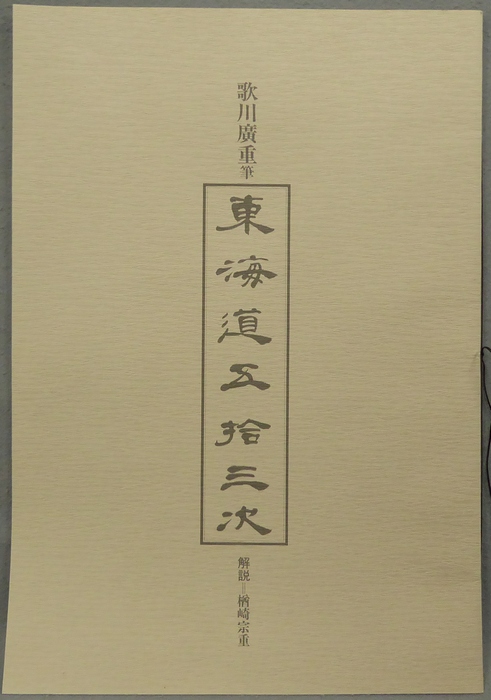 歌川廣重筆
東海道五拾三次
解説＝楢崎宗重